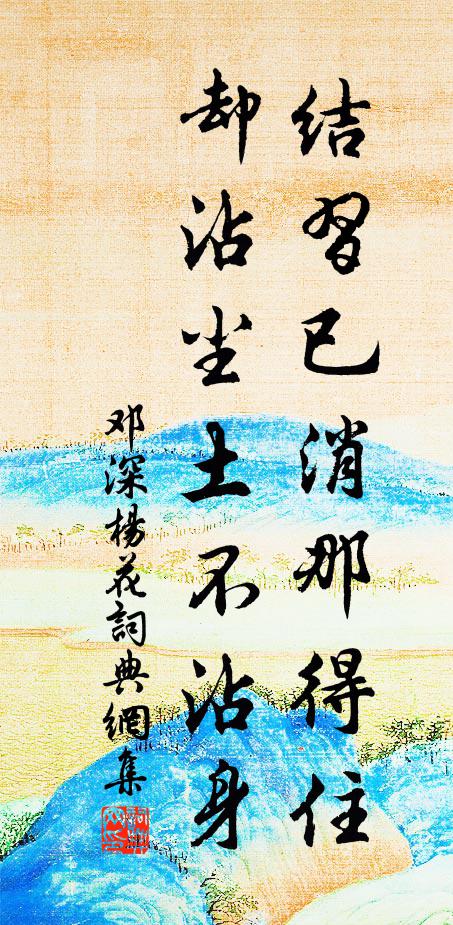 结习已消那得住
却沾尘土不沾身
邓深杨花詞典網集